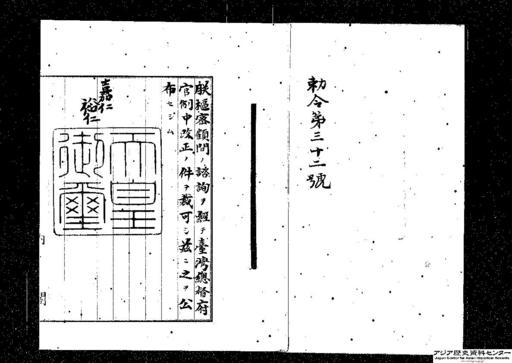 勅令第三十二號
朕樞密顧問ノ諮詢ヲ經テ臺灣總督府
官制中改正ノ件ヲ裁可シ茲ニ之ヲ公
布セシム
嘉仁
裕仁
天皇
御璽
内
閣
アジア歴史資料センター
Japan Center for Asian Historical Records